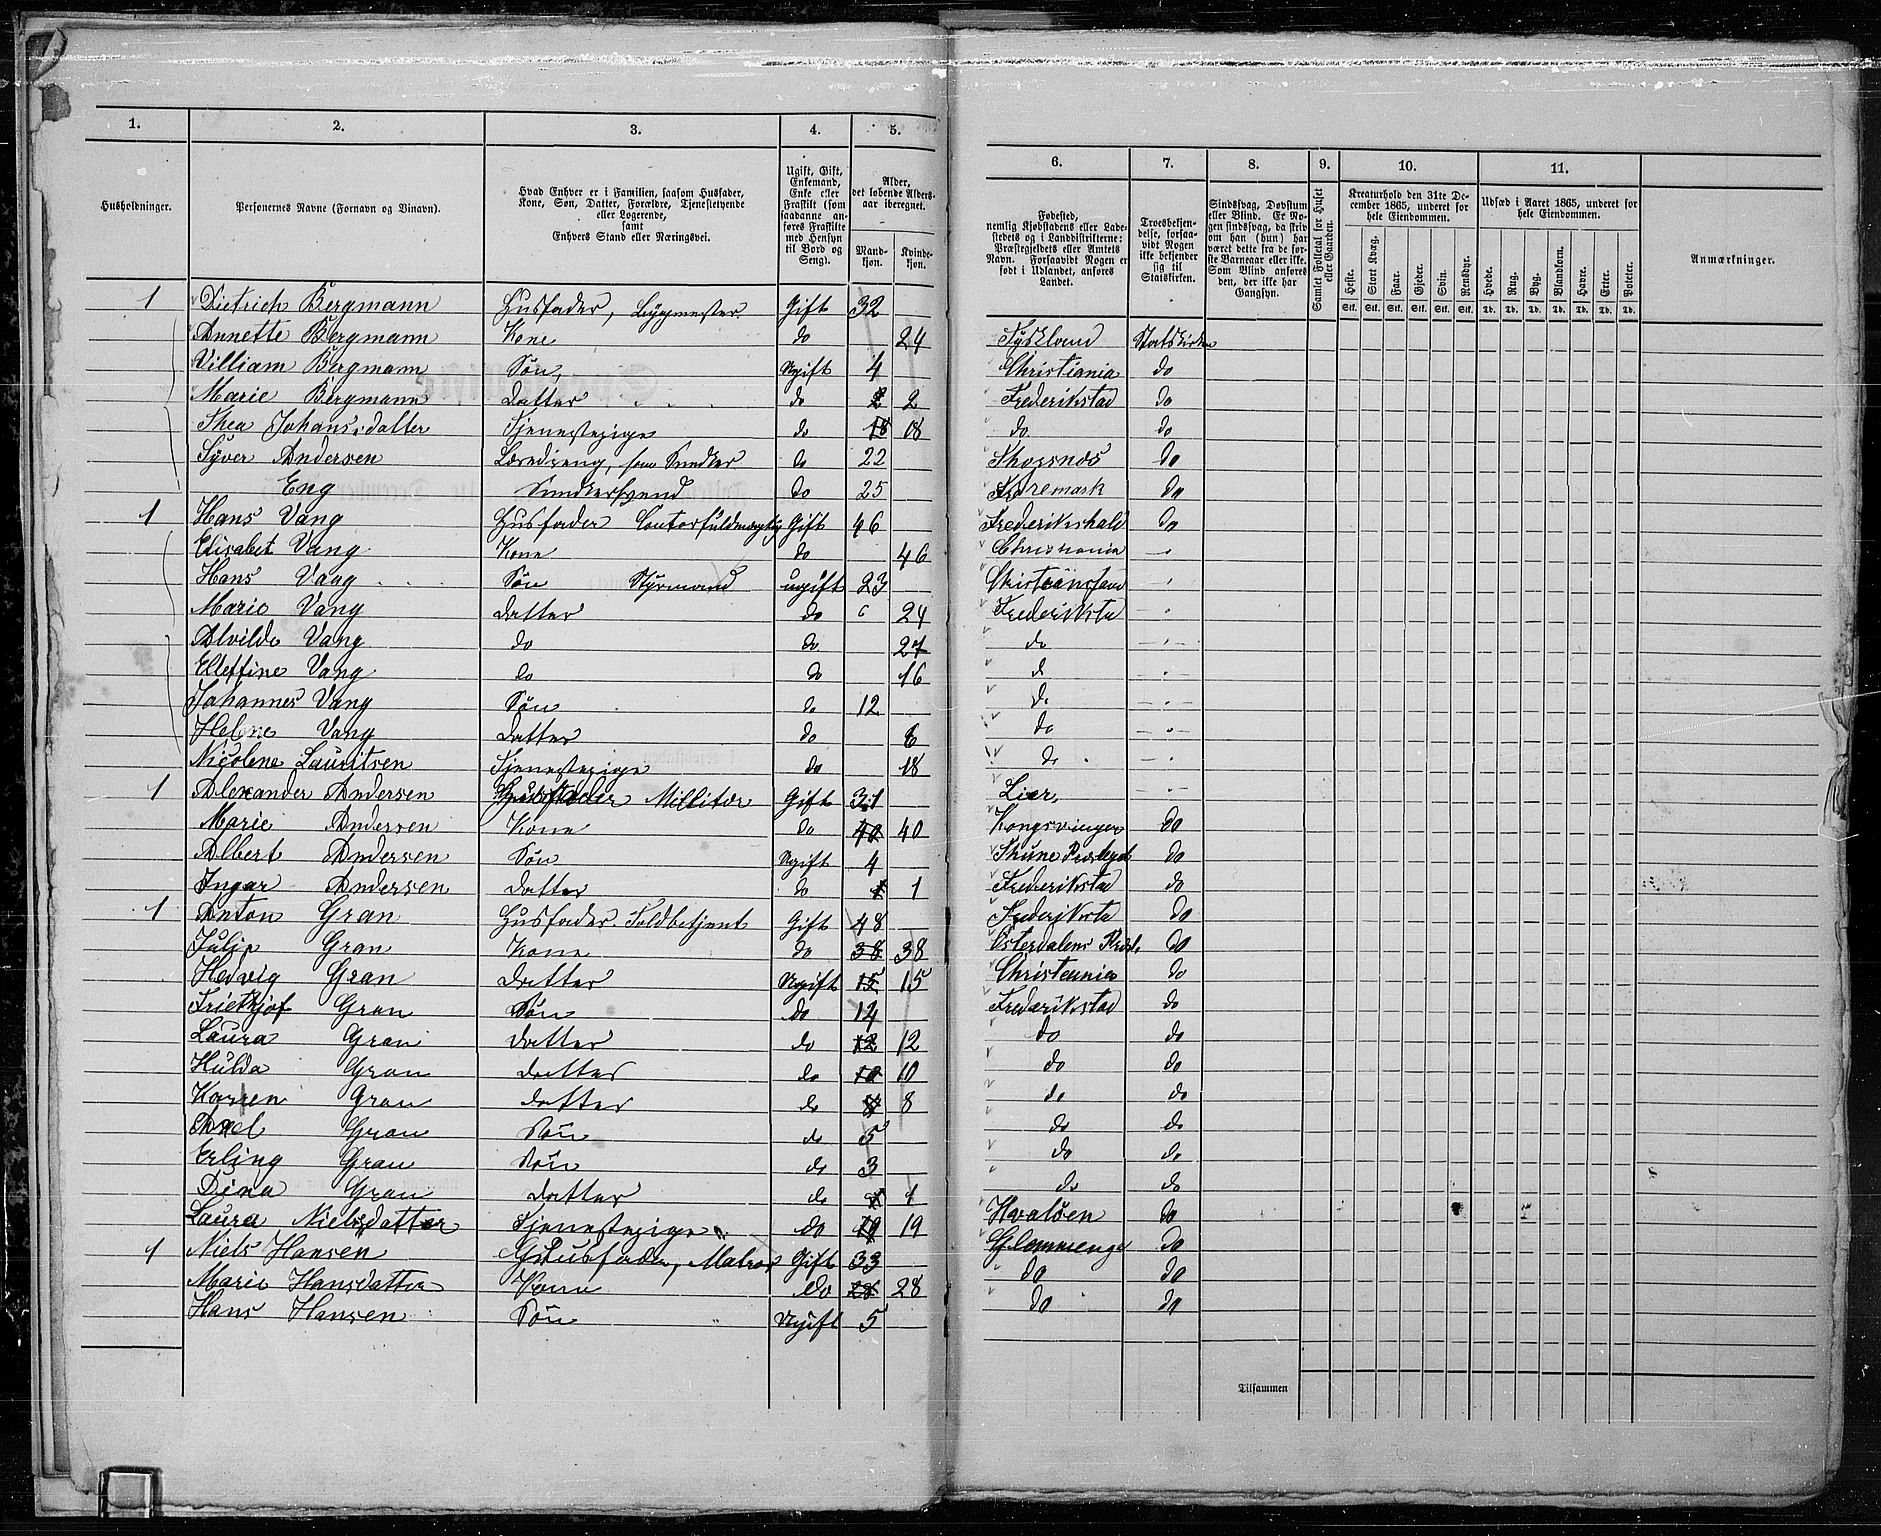 1. 2. 3. 4. 5.
Husholdninger. Personernes Navne (Fornavn og Tilnavn). Hvad Enhver er i Familien, saasom Husfader, Kone, Søn, Datter, Forældre, Tjenestetyende eller Logerende, samt Enhvers Stand eller Næringsvei. Ugift, Gift, Enkemand, Enke eller Fraskilt (som saadanne anføres Fraskilte med Hensyn til Bord og Seng). Alder, det løbende Aldersaar iberegnet. Mandkjøn. Kvindekjøn.
1 Dietrich Bergmann Husfader, Bygmester Gift 32
Annette Bergmann Kone do 24
Villiam Bergmann Søn, Ugift 4
Marie Bergmann Datter do 2 2
Thea Johansdatter Tjenestepige do 18 18
Syver Andersen Læredreng, som Snedker do 22
Eng Snedkersvend do 25
1 Hans Vang Husfader Contorfuldmægtig Gift 46
Elisabet Vang Kone do 46
Hans Vang Søn Styrmand ugift 23
Marie Vang Datter do 24
Alvilde Vang do do 27
Eleffine Vang do do 16
Johannes Vang Søn do 12
Helene Vang Datter do 6
Nicolene Lauritsen Tjenestepige do 18
1 Alexander Andersen Husfader Millitær Gift 31
Marie Andersen Kone do 40 40
Albert Andersen Søn Ugift 4
Ingar Andersen Datter do 1 1
1 Anton Gran Husfader Toldbetjent Gift 48
Julie Gran Kone do 38 38
Hedvig Gran Datter Ugift 15 15
Friethjof Gran Søn do 14
Laura Gran Datter do 12 12
Hulda Gran Datter do 10 10
Karren Gran datter do 8 8
Axel Gran Søn do 5
Erling Gran Søn do 3
Dina Gran Datter do 1 1
Laura Nielsdatter Tjenestepige do 19 19
1 Niels Hansen Husfader, Matros Gift 33
Marie Hansdatter Kone do 28 28
Hans Hansen Søn Ugift 5
6. 7. 8. 9. 10. 11.
Fødested, nemlig Kjøbstadens eller Ladestedets og i Landdistrikterne: Præstegjeldets eller Amtets Navn. Forsaavidt Nogen er født i Udlandet, anføres Landet. Troesbekjendelse, forsaavidt Nogen ikke bekjender sig til Statskirken. Sindssvag, Døvstum eller Blind. Er Nogen sindssvag, da skrives om han (hun) har været dette fra de første Barneaar eller ikke. Som Blind anføres den, der ikke har Gangsyn. Samlet Folketal for Huset eller Gaarden. Kreaturhold den 31te December 1865, underet for hele Eiendommen. Udsæd i Aaret 1865, underet for hele Eiendommen. Anmærkninger.
Heste. Stort Kvæg. Faar. Gjeder. Svin. Rensdyr. Hvede. Rug. Byg. Blandkorn. Havre. Erter. Poteter.
Stk. Stk. Stk. Stk. Stk. Stk. Td. Td. Td. Td. Td. Td. Td.
Tyskland Statskirken
Christiania do
Frederikstad do
do do
Skogsnæs do
do
Frederikshald do
Christiania
Christiansand
Frederiksta
do
d
do
do
do
Lier,
Kongsvinger do
do
Frederikstad do
Frederiksta do
Østerdalens Præst. do
Christiania do
Frederikstad do
do do
do do
do do
do do
do do
do do
Hvaløen do
Glemmenge do
do do
do do
Tilsammen